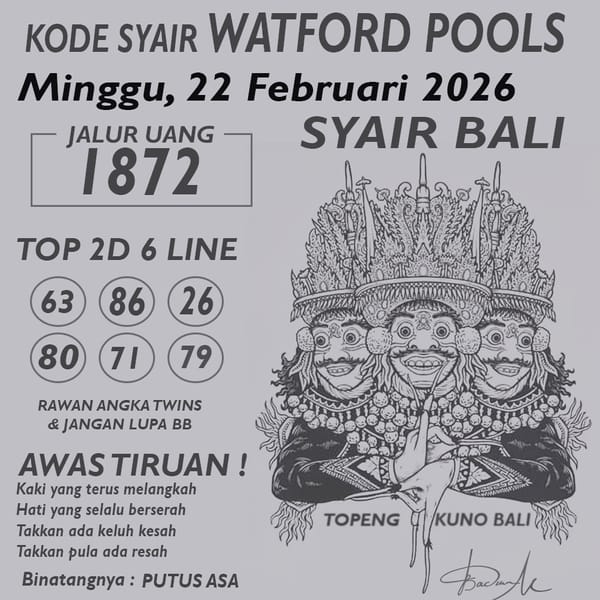 KODE SYAIR WATFORD POOLS
Minggu, 22 Februari 2026
JALUR UANG
1872
SYAIR BALI
TOP 2D 6 LINE
63 86 26
80 71 79
RAWAN ANGKA TWINS
& JANGAN LUPA BB
AWAS TIRUAN !
Kaki yang terus melangkah
Hati yang selalu berserah
Takkan ada keluh kesah
Takkan pula ada resah
Binatangnya : PUTUS ASA
TOPENG KUNO BALI